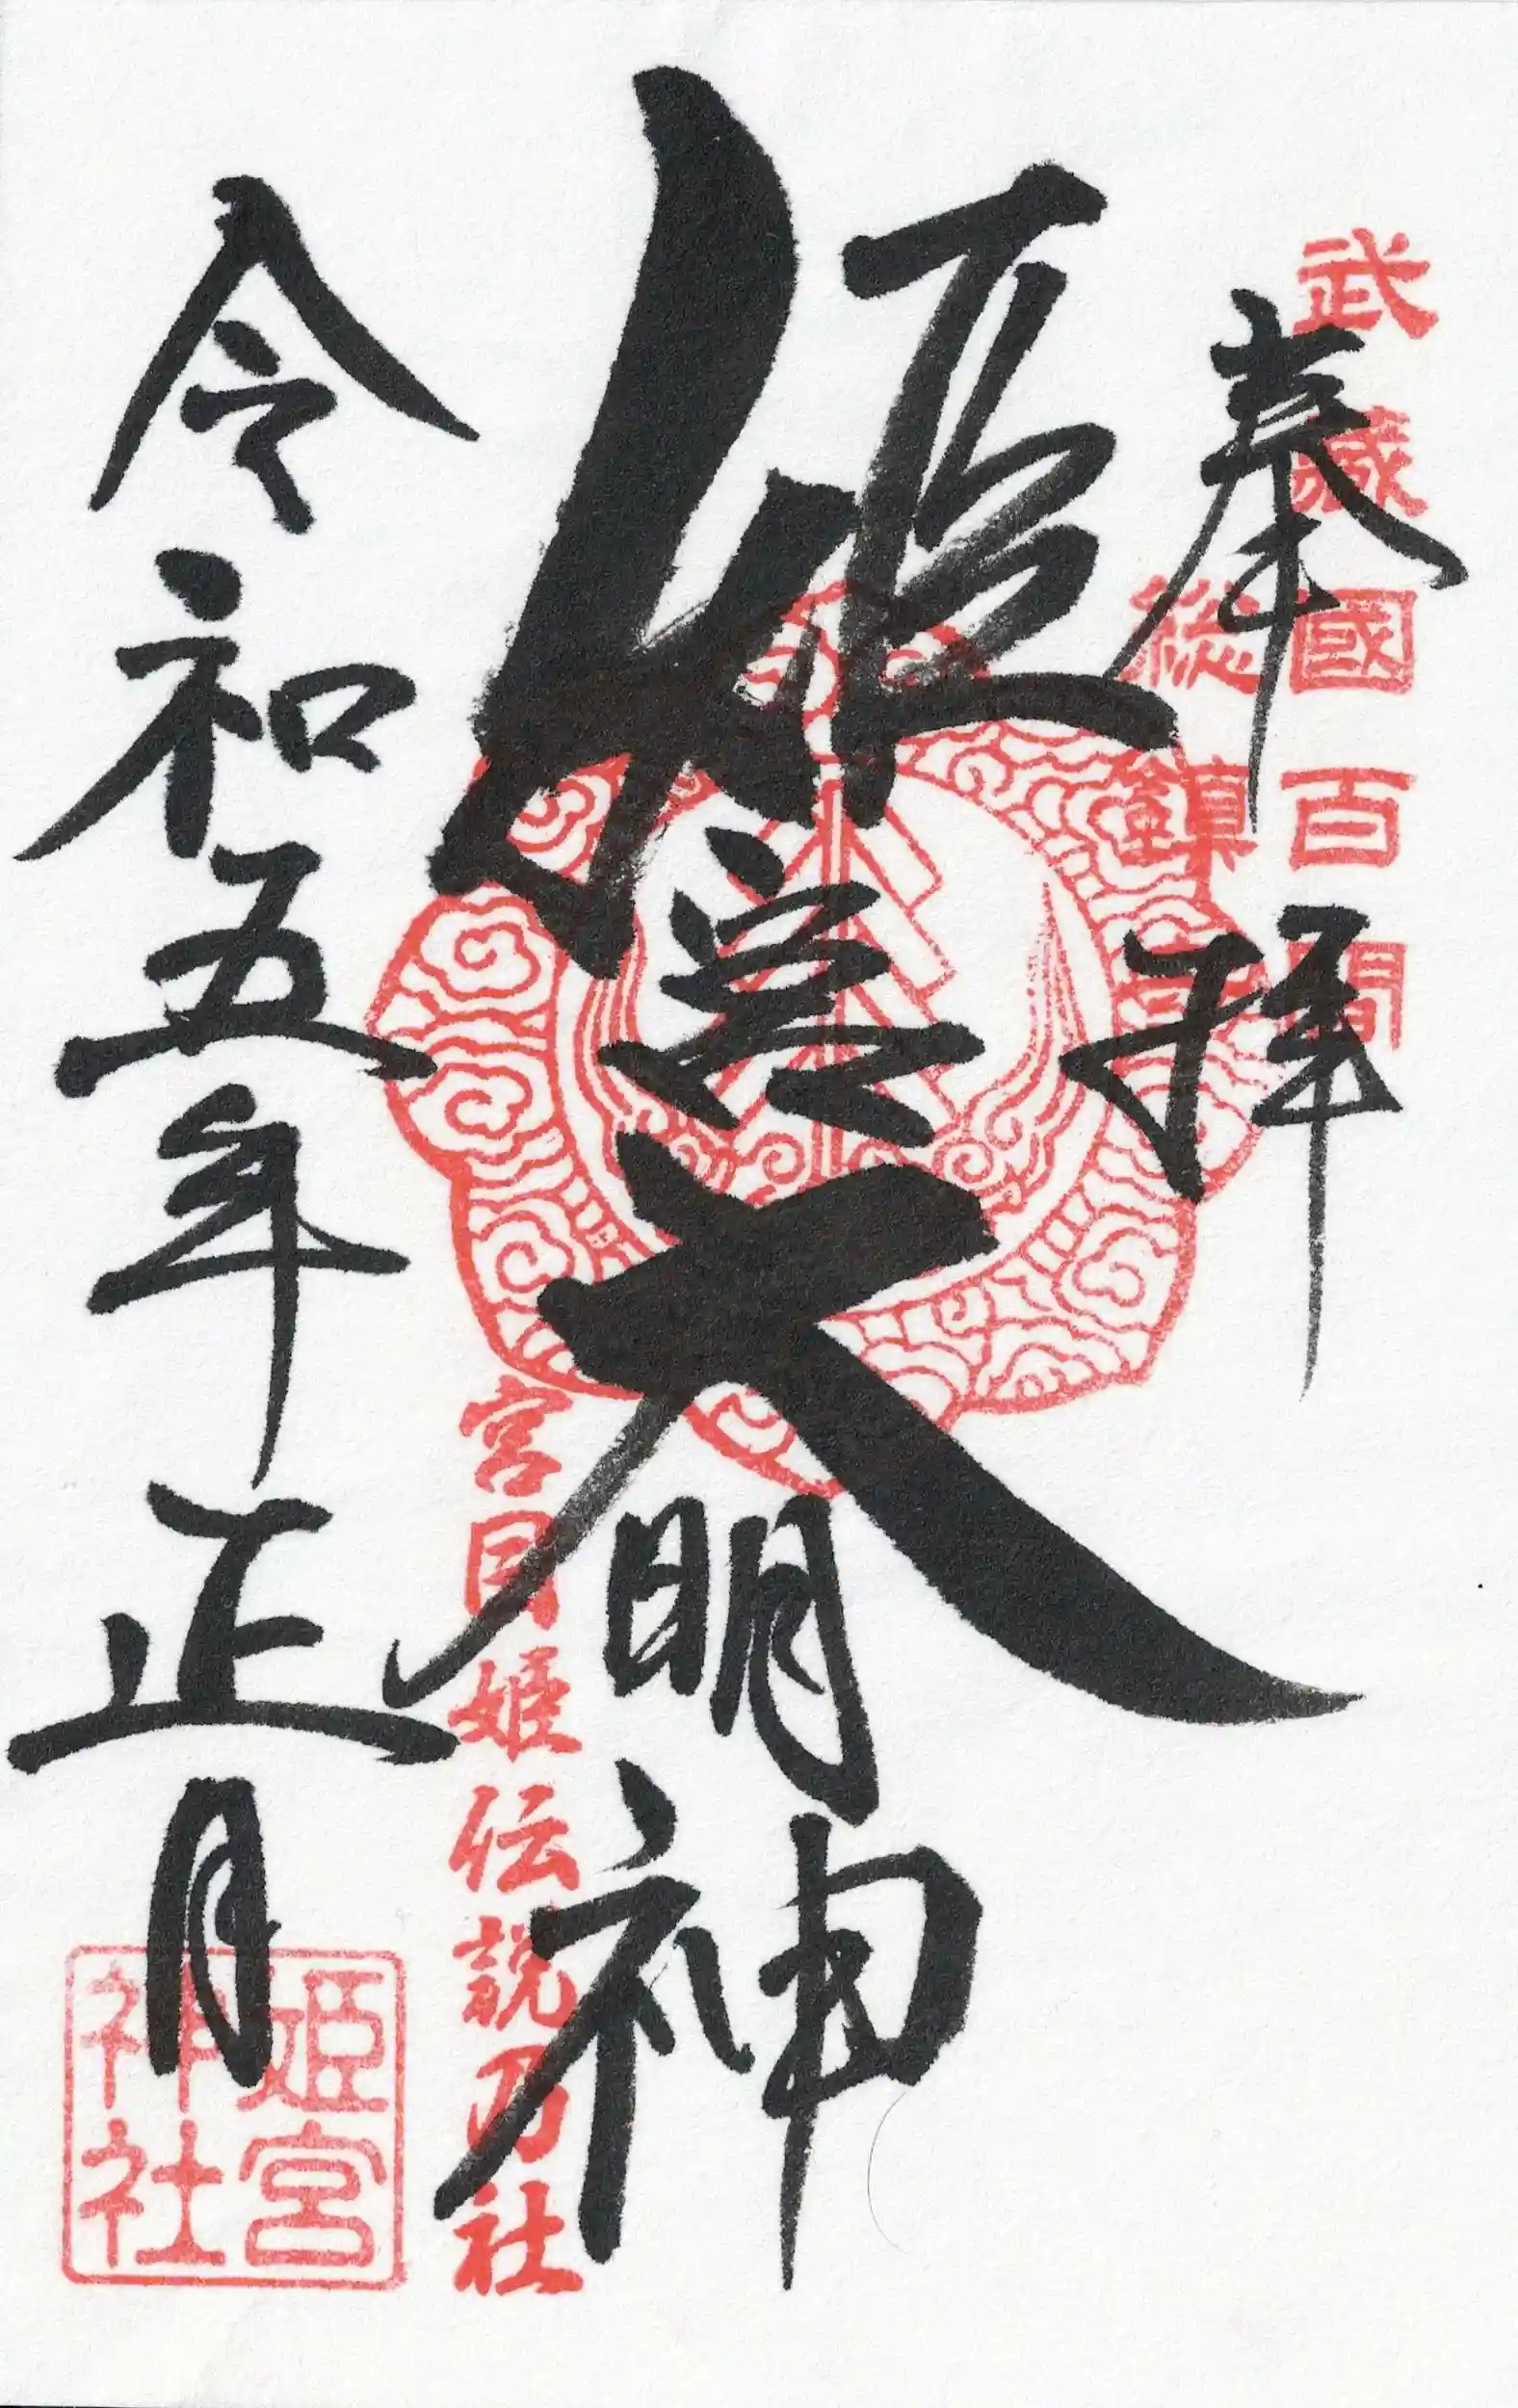 武藏國百間
総鎮守
奉拝
姫宮大明神
宮目姫伝説乃社
令和五年正月
姫宮
神社